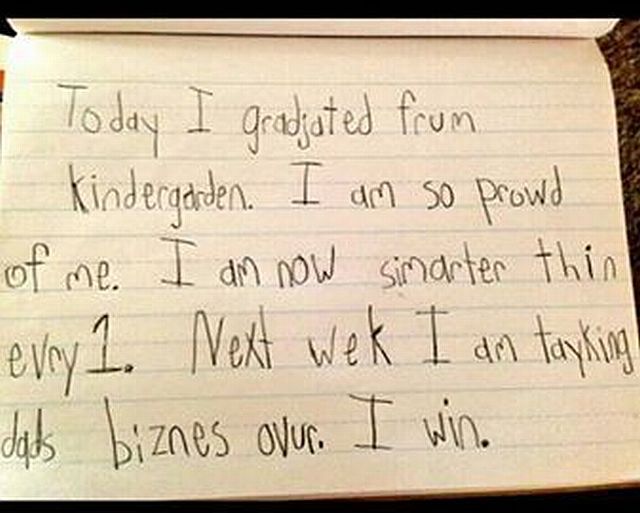 Today I gradjated frum
Kindergarden. I am so prowd
of me. I am now simarter thin
evry 1. Next wek I am tayking
dads biznes ovur. I win.